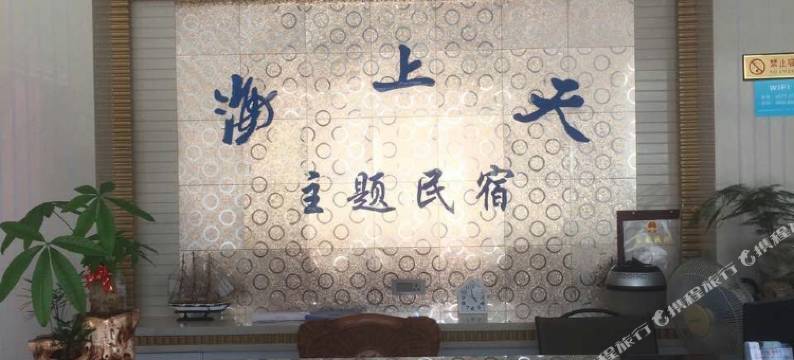 海上天
主题民宿
禁止吸
WIFI
携程旅行
携程旅行